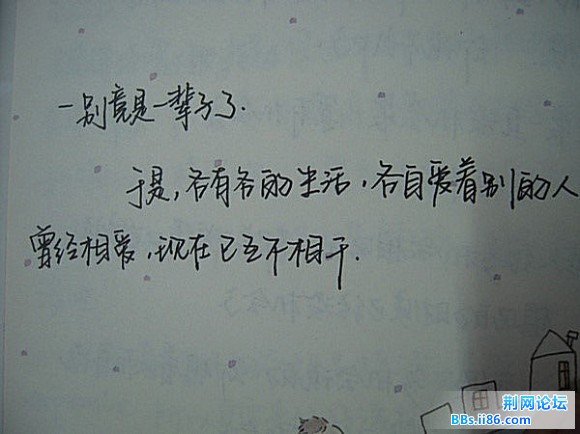 一别竟是一辈子了.
于是,各有各的生活,各自爱着别的人
曾经相爱,现在已互不相干.
荆网论坛
BBs.ii86.com